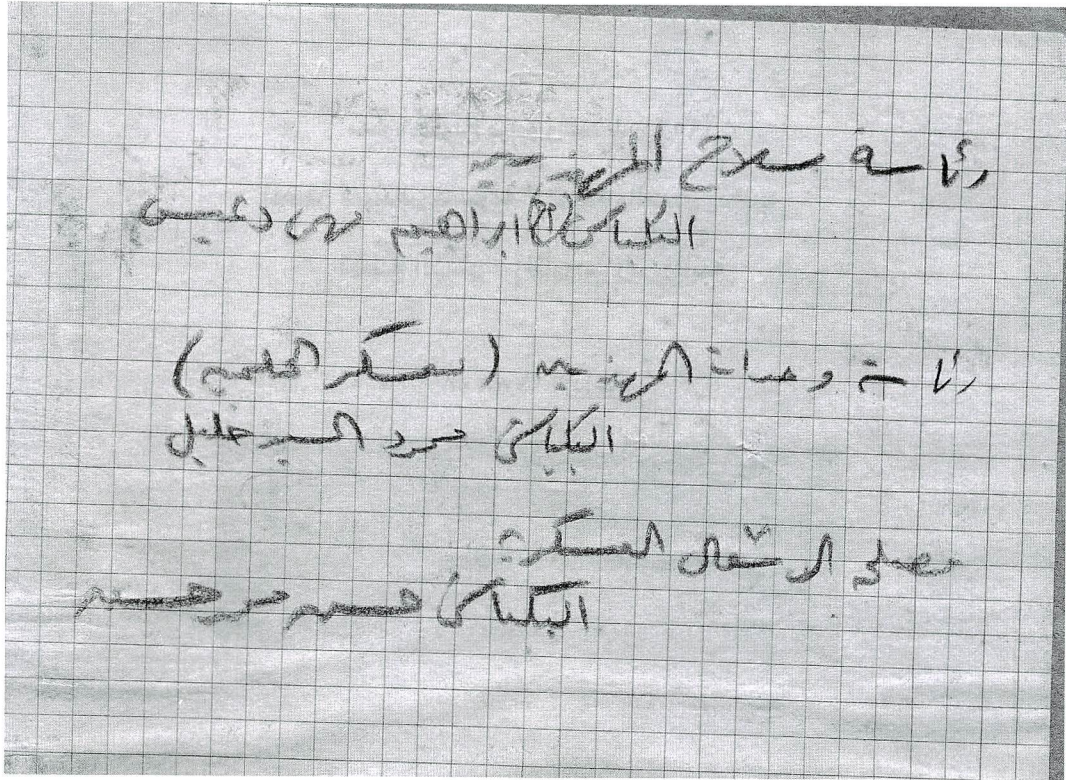 رئاسة سلاح المهندسين
البكباشى (أح) ابراهيم
رئاسة وحدات المهندسين (معسكر الحلمية)
البكباشى محمود السيد خليل
مصلحة الاشغال العسكرية
البكباشى حسين